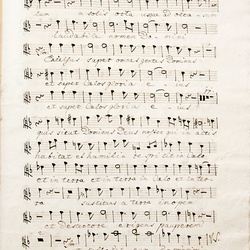 laudabile nomen Domini
Excelsus super omnes gentes Dominus
et super Coelos gloria e ius
et super Coelos gloria e ius
quis sicut Dominus Deus noster qui in altis
habitat et humilia respicit in Coelo
et in terra et in terra in Coelo et in ter
ra suscitans a terra inopem
et De stercore erigens pauperem